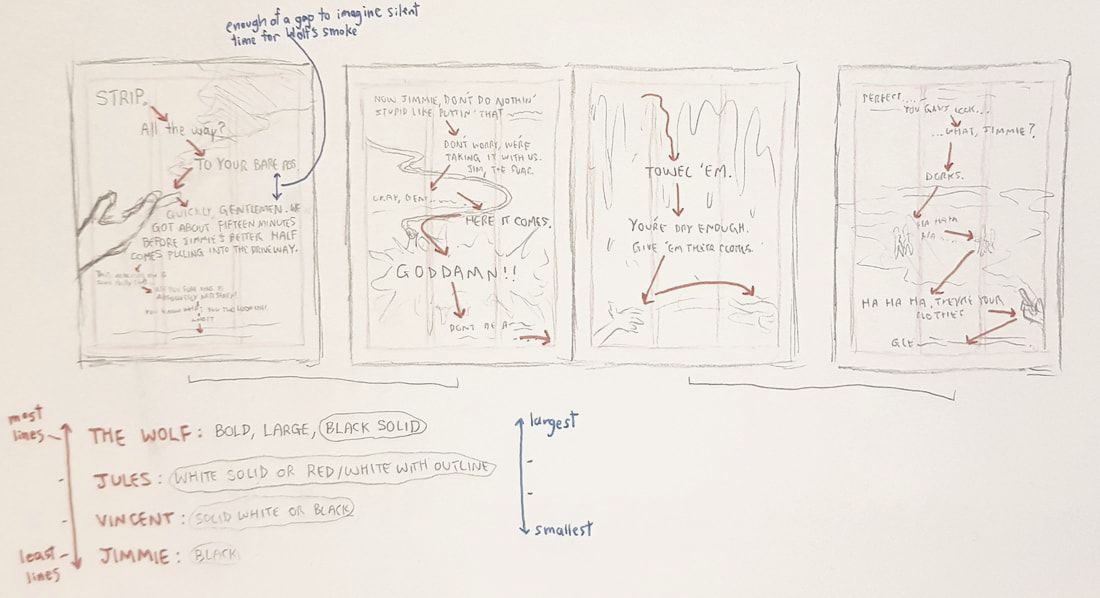 enough of a gap to imagine silent
time for Wolf's smoke
STRIP.
All the way?
TO YOUR BARE ASS.
QUICKLY, GENTLEMEN. WE
GOT ABOUT FIFTEEN MINUTES
BEFORE JIMMIE'S BETTER HALF
COMES PULLING INTO THE DRIVEWAY.
ABSOLUTELY NECESSARY?
YOU KNOW WHAT YOU TWO LOOK LIKE?
WHAT?
NOW JIMMIE, DON'T DO NOTHIN'
STUPID LIKE PUTTIN' THAT
DON'T WORRY, WE'RE
TAKING IT WITH US.
JIM, THE SOAP.
OKAY, GENT
HERE IT COMES.
GODDAMN!!
DON'T BE A
TOWEL 'EM.
YOU'RE DRY ENOUGH.
GIVE 'EM THEIR CLOTHES.
PERFECT...
YOU GUYS LOOK...
...WHAT, JIMMIE?
DORKS.
HA HA HA
HA HA HA, THEY'RE YOUR
CLOTHES
most
lines
THE WOLF: BOLD, LARGE, BLACK SOLID
JULES: WHITE SOLID OR RED/WHITE WITH OUTLINE
VINCENT: SOLID WHITE OR BLACK
JIMMIE: BLACK
least
lines
largest
smallest